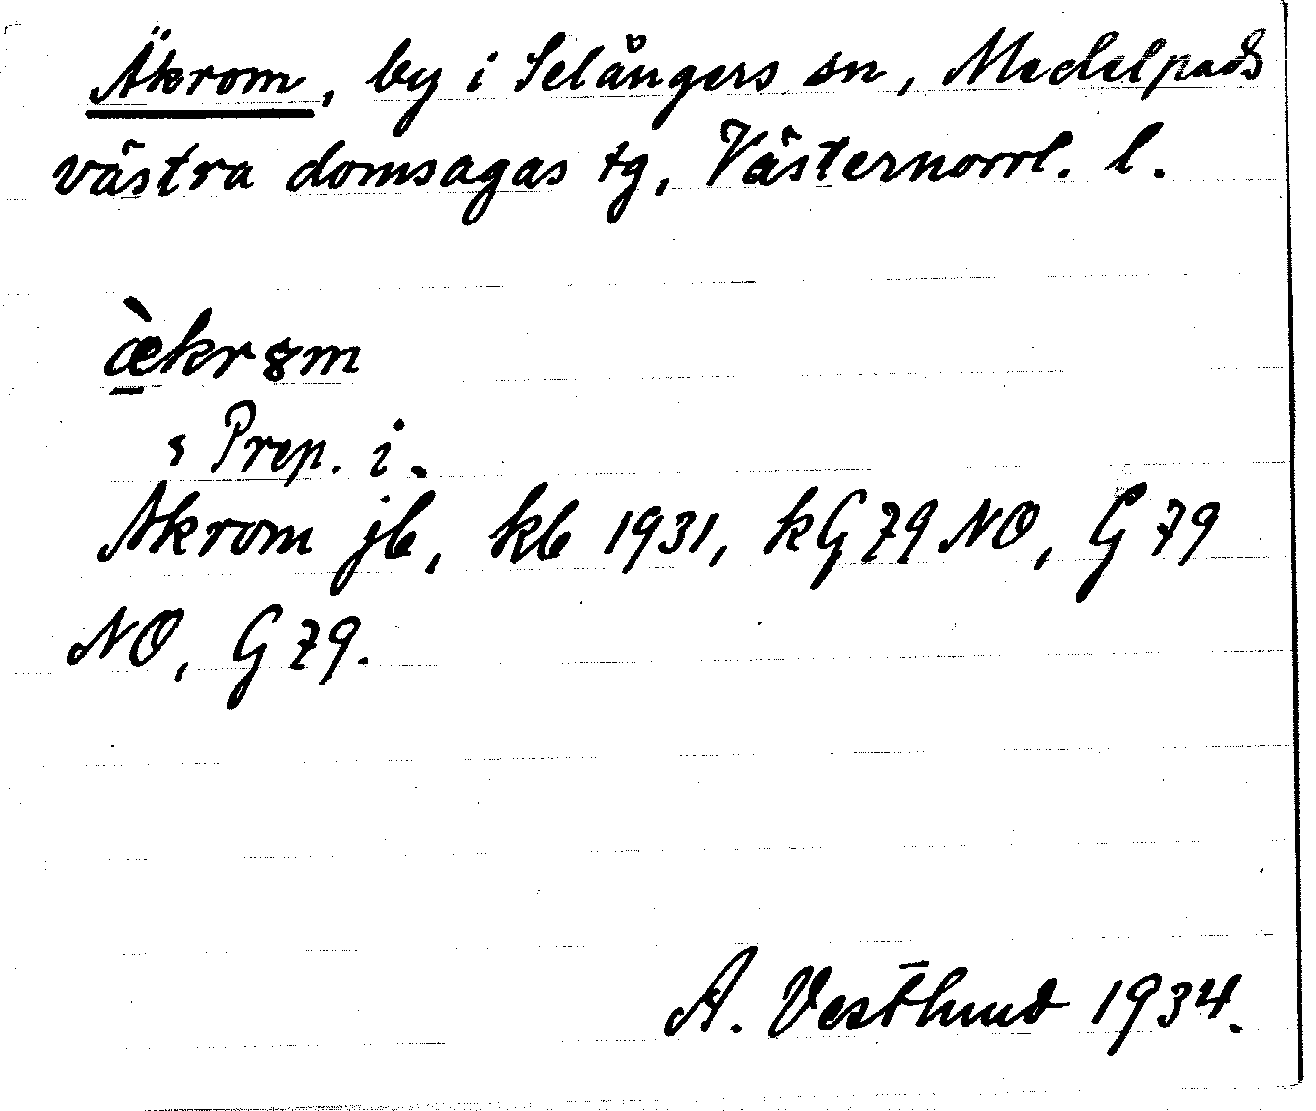 Äkrom, by i Selångers sn, Medelpads
västra domsagas tg, Västernorrl. l.
æ̀krȣm
Prep. i.
Äkrom jb, kb 1931, kG 79 NO, G 79
NO, G 79.
A. Vestlund 1934.